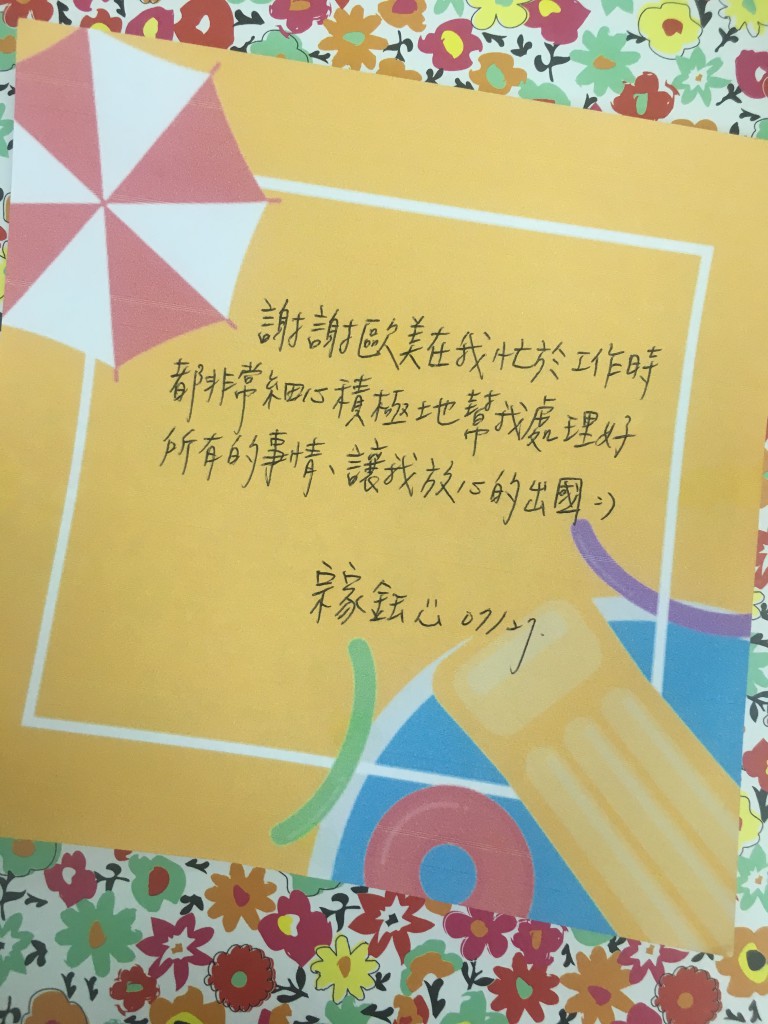 謝謝歐美在我忙於工作時
都非常細心積極地幫我處理好
所有的事情、讓我放心的出國:)
家鈺 07/27.